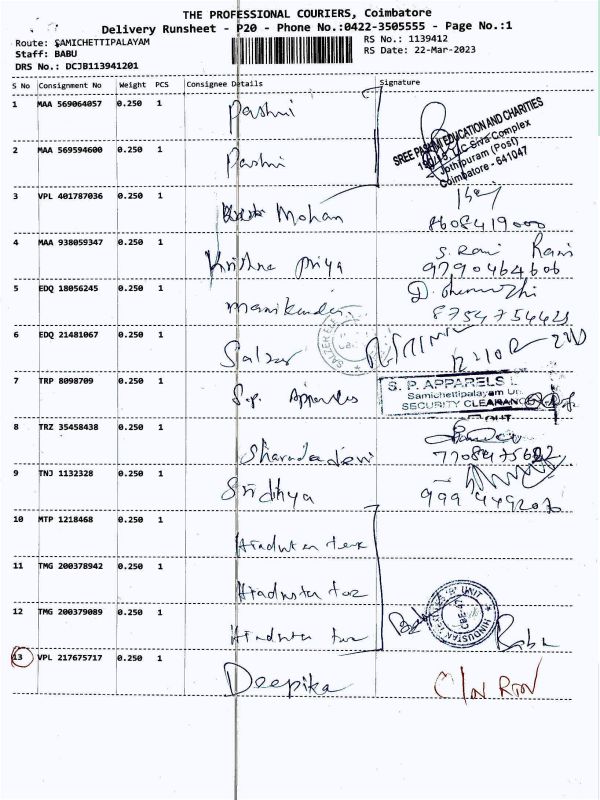 THE PROFESSIONAL COURIERS, Coimbatore
Delivery Runsheet - P20 - Phone No.:0422-3505555 - Page No.:1
Route: SAMICHETTIPALAYAM
Staff: BABU
DRS No.: DCJB113941201
RS No.: 1139412
RS Date: 22-Mar-2023
S No Consignment No Weight PCS Consignee Details Signature
1 MAA 569064057 0.250 1 Pashni
SREE PASHMI EDUCATION AND CHARITIES
190/15, LIC Siva Complex
Jothipuram (Post)
Coimbatore - 641047
2 MAA 569594600 0.250 1 Pashni
3 VPL 401787036 0.250 1 Mohan
8608419000
4 MAA 938059347 0.250 1 Krishna priya S. Rani Rani
9790464606
5 EDQ 18056245 0.250 1 manikandan
8754754423
6 EDQ 21481067 0.250 1 Salzer
7 TRP 8098709 0.250 1 S.p. Apparels
S. P. APPARELS L
Samichettipalayam Un
SECURITY CLEARANC
OUT
8 TRZ 35458438 0.250 1 Sharadadevi
9 TNJ 1132328 0.250 1 Sridhya
10 MTP 1218468 0.250 1 Hindustan tex
11 TMG 200378942 0.250 1 Hindustan tex
12 TMG 200379089 0.250 1 Hindustan tex
Babu
13 VPL 217675717 0.250 1 Deepika C/N RTN